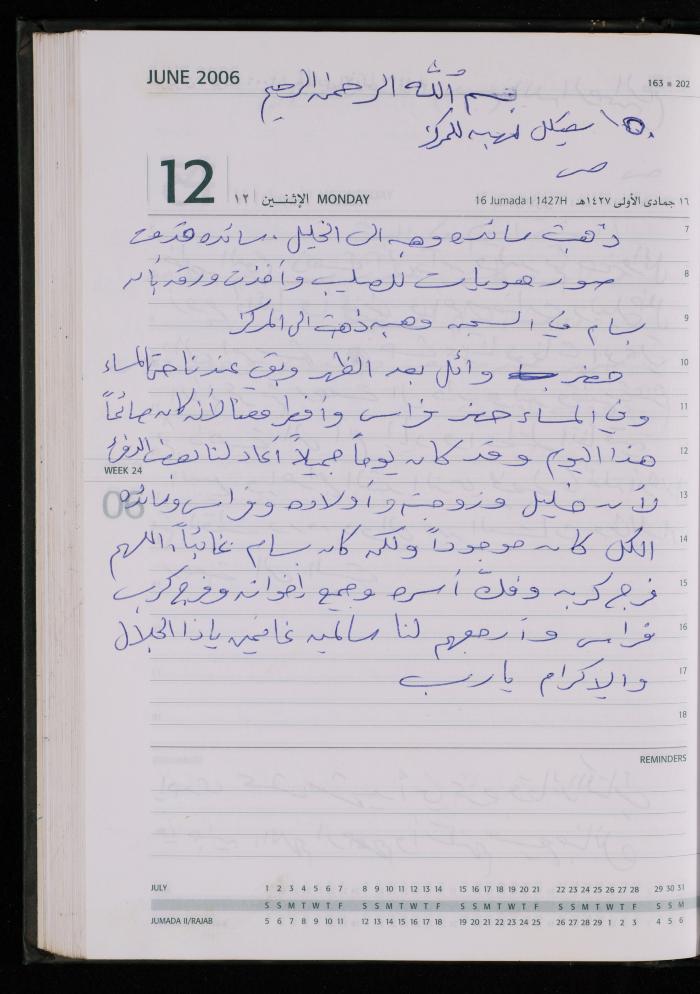 JUNE 2006
بسم الله الرحمن الرحيم
163 ■ 202
١٥٠ شيكل لهبه للمركز
12 ١٢ الإثنـــين MONDAY
16 Jumada I 1427H ١٦ جمادى الأولى ١٤٢٧هـ
7 ذهبت سائده وهبه الى الخليل. سائده قدمت
8 صور هويات للصليب وأخذت ورقه بأن
9 بسام في السجن وهبه ذهبت الى المركز
10 حضر وائل بعد الظهر وبقي عندنا حتى المساء
11 وفي المساء حضر فراس وأفطر معنا لأنه كان صائماً
12 هذا اليوم وقد كان يوماً جميلاً أعاد لنا بعض الدفئ
WEEK 24
06
13 لأن خليل وزوجته وأولاده وفراس وسائده
14 الكل كان موجوداً ولكن كان بسام غائباً، اللهم
15 فرج كربه وفك أسره وجميع إخوانه وفرج كرب
16 فراس وأرجعهم لنا سالمين غانمين ياذا الجلال
17 والاكرام يارب
18
REMINDERS
JULY 1 2 3 4 5 6 7 8 9 10 11 12 13 14 15 16 17 18 19 20 21 22 23 24 25 26 27 28 29 30 31
S S M T W T F S S M T W T F S S M T W T F S S M T W T F S S M
JUMADA II/RAJAB 5 6 7 8 9 10 11 12 13 14 15 16 17 18 19 20 21 22 23 24 25 26 27 28 29 1 2 3 4 5 6